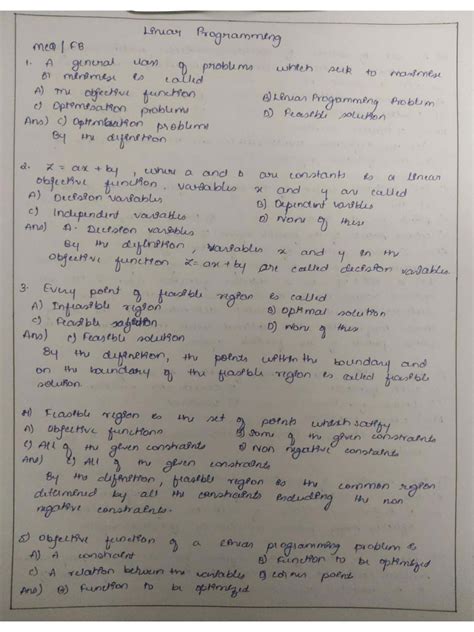 Linear Programming
MCQ / FB
1. A general class of problems which seek to maximise
or minimise is called
A) The objective function B) Linear Programming Problem
C) Optimisation problems D) Feasible solution
Ans) C) Optimisation problems
By the definition
2. Z = ax + by, where a and b are constants is a linear
objective function. variables x and y are called
A) Decision variables B) Dependent varibles
C) Independent variables D) None of these
Ans) A. Decision variables
By the definition, variables x and y in the
objective function Z = ax + by are called decision variables.
3. Every point of feasible region is called
A) Infeasible region B) optimal solution
C) Feasible solution D) none of this
Ans) C) Feasible solution
By the definition, the points within the boundary and
on the boundary of the feasible region is called feasible
solution.
4) Feasible region is the set of points which satisfy
A) Objective functions B) Some of the given constraints
C) All of the given constraints D) Non negative constraints
Ans) C) All of the given constraints
By the definition, feasible region is the common region
determined by all the constraints including the non
negative constraints.
5) Objective function of a linear programming problem is
A) A constraint B) Function to be optimized
C) A relation between the variables D) corner points
Ans) B) Function to be optimized